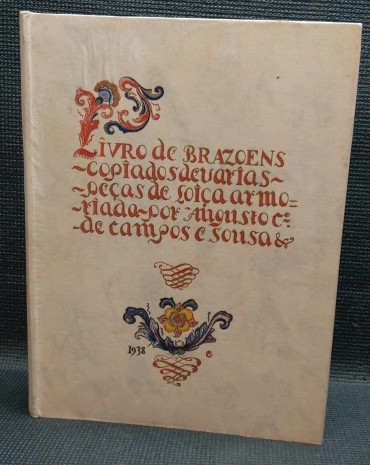 LIVRO de BRAZOENS
~copiados de varias~
~peças de loiça armo=
riada~por Augusto cº
de campos e sousa &
1938